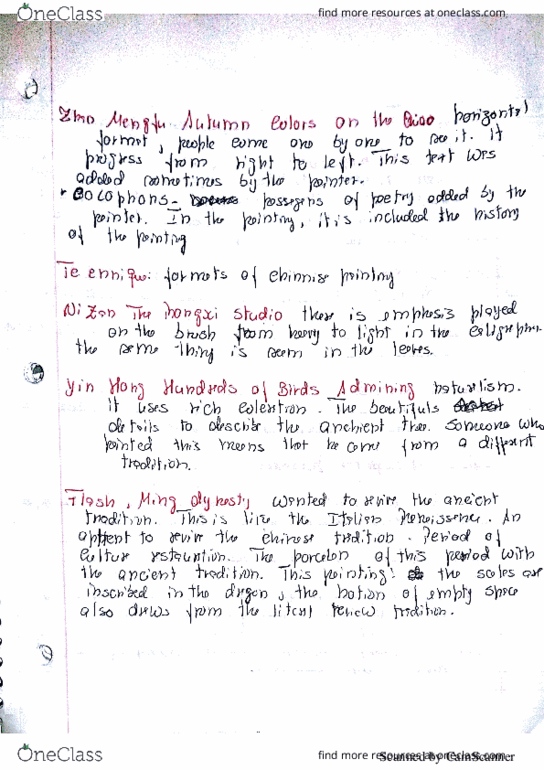 OneClass
find more resources at oneclass.com
Zhao Mengfu Autumn Colors on the Qiao horizontal
format, people come one by one to see it. It
progress from right to left. This text was
added sometimes by the painter.
Colophons - passages of poetry added by the
painter. In the painting, it is included the history
of the painting
Technique: formats of chinnise painting
Ni Zan The Rongxi studio there is emphasis played
on the brush from heavy to light in the
the same thing is seem in the leaves.
Yin Hong Hundreds of Birds Admiring naturalism.
it uses rich coloration. The beautifuls
details to describe the anchient tree. Someone who
painted this means that he come from a different
tradition.
Flash, Ming dynesty wanted to revive the ancient
tradition. This is like the Italian Renaissence. An
attent to revive the chinese tradition. Period of
culture restauration. The porcelan of this period with
the ancient tradition. This painting: the scales are
inscribed in the dragon, the notion of empty space
also draws from the review tradition.
OneClass
find more resources at oneclass.com
Scanned by CamScanner